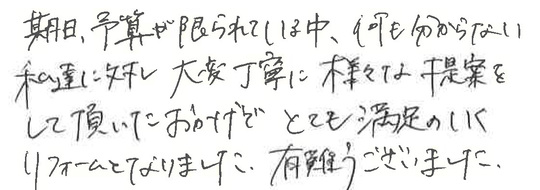 期日、予算が限られている中、何も分からない
私達に対し大変丁寧に様々な提案を
して頂いたおかげでとても満足のいく
リフォームとなりました、有難うございました、